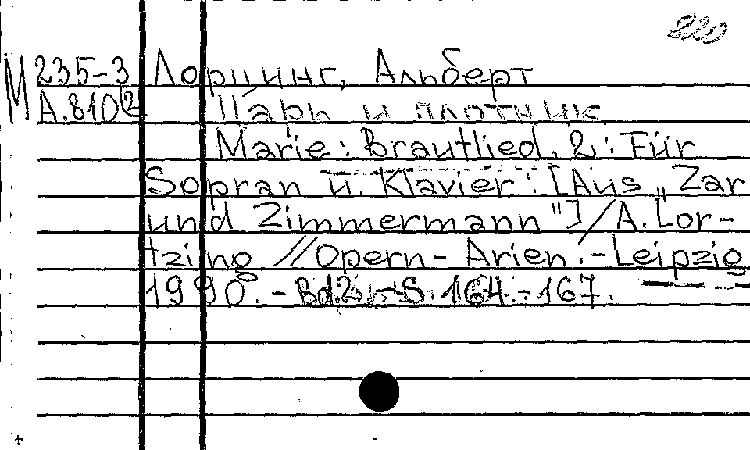 220
М 235-3 Лорцинг, Альберт
А.8102 Царь и плотник
Marie: Brautlied, 2: Für
Sopran u. Klavier: [Aus „Zar
und Zimmermann"] / A. Lor-
tzing // Opern-Arien. - Leipzig
1990. - Bd.2. - S. 164.-167.